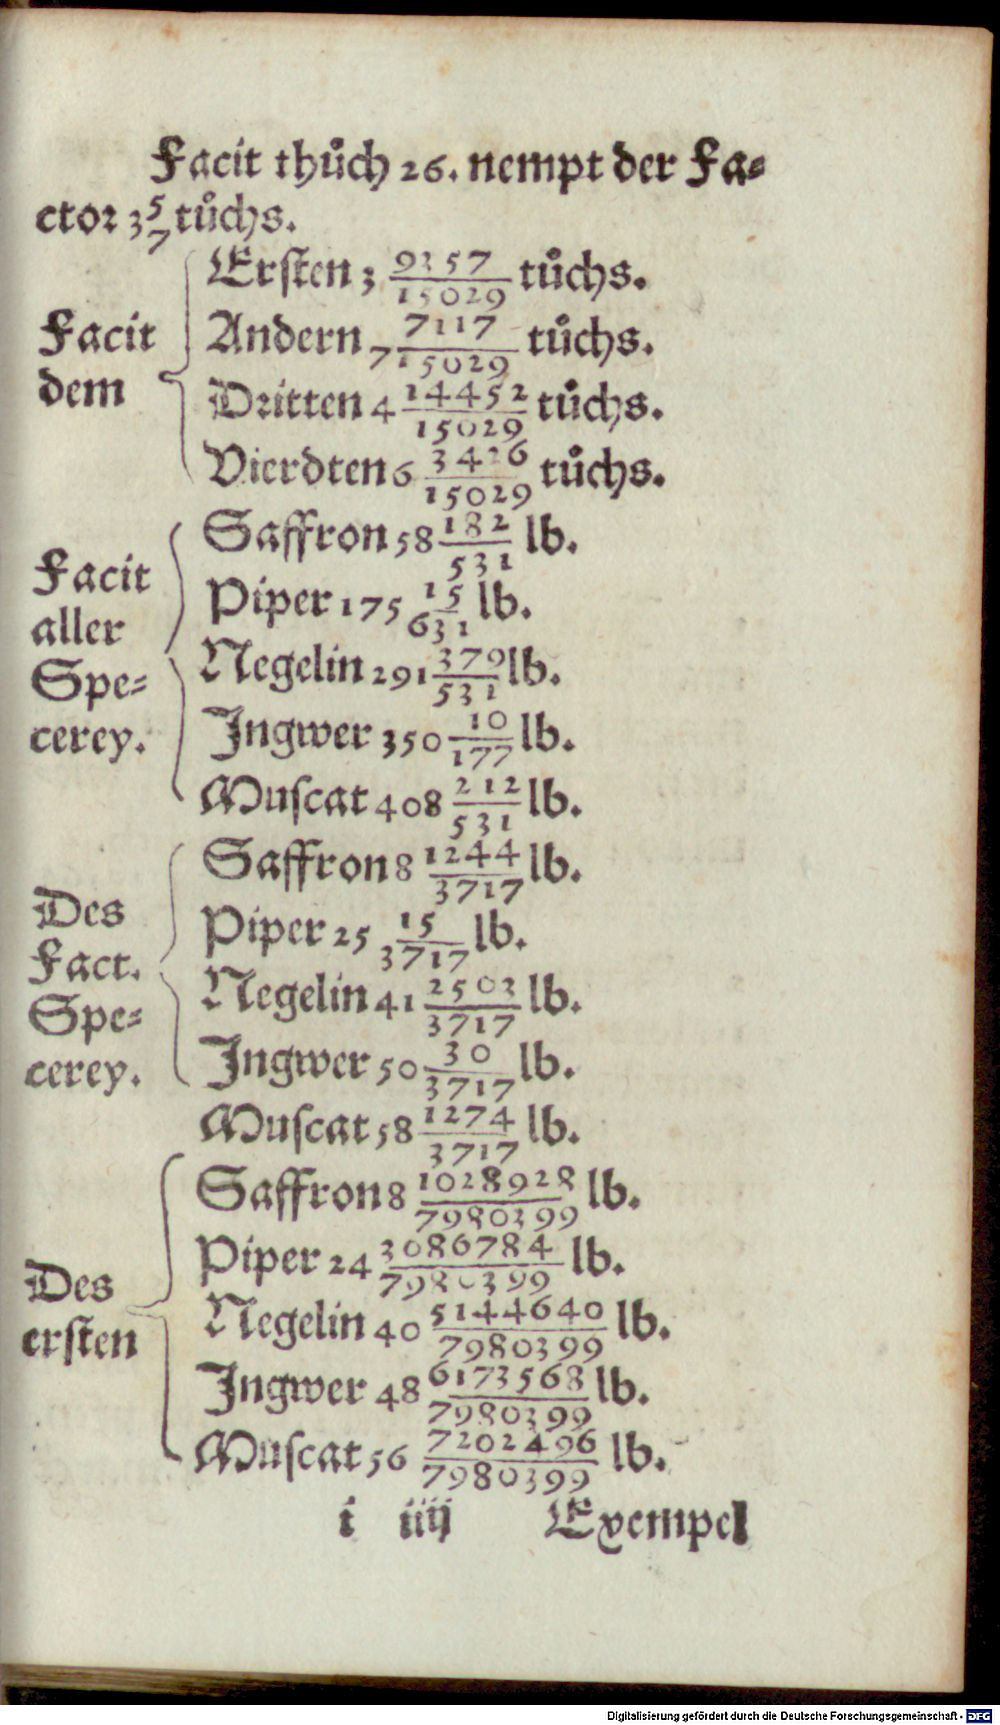 Facit thůch 26. nempt der Fa-
ctor 3 5/7 tůchs.
Facit dem
Ersten 3 9357/15029 tůchs.
Andern 7 7117/15029 tůchs.
Dritten 4 14452/15029 tůchs.
Vierdten 6 3426/15029 tůchs.
Facit aller Spe-
cerey.
Saffron 58 182/531 lb.
Piper 175 15/631 lb.
Negelin 291 379/531 lb.
Ingwer 350 10/177 lb.
Muscat 408 212/531 lb.
Des Fact. Spe-
cerey.
Saffron 8 1244/3717 lb.
Piper 25 15/3717 lb.
Negelin 41 2503/3717 lb.
Ingwer 50 30/3717 lb.
Muscat 58 1274/3717 lb.
Des ersten
Saffron 8 1028928/7980399 lb.
Piper 24 3086784/7980399 lb.
Negelin 40 5144640/7980399 lb.
Ingwer 48 6173568/7980399 lb.
Muscat 56 7202496/7980399 lb.
i iiij Exempel
Digitalisierung gefördert durch die Deutsche Forschungsgemeinschaft - DFG